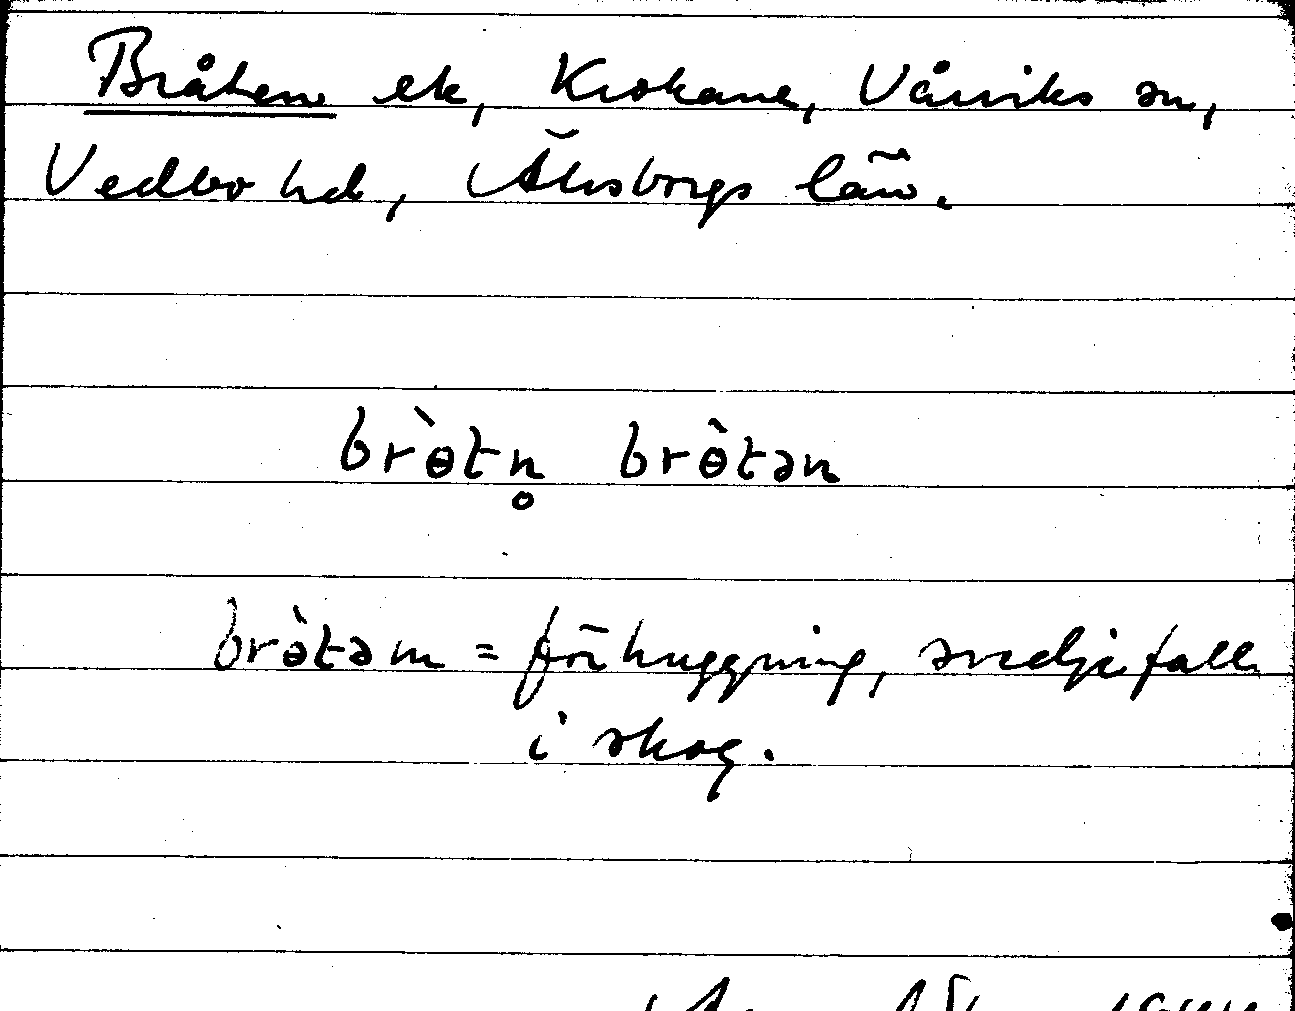 Bråten ek, Krokane, Vårviks sn,
Vedbo hd, Älvsborgs län.
brɵ̀tn̥ brɵ̂tən
brɵ̀təm = förhuggning, svedjefall
i skog.